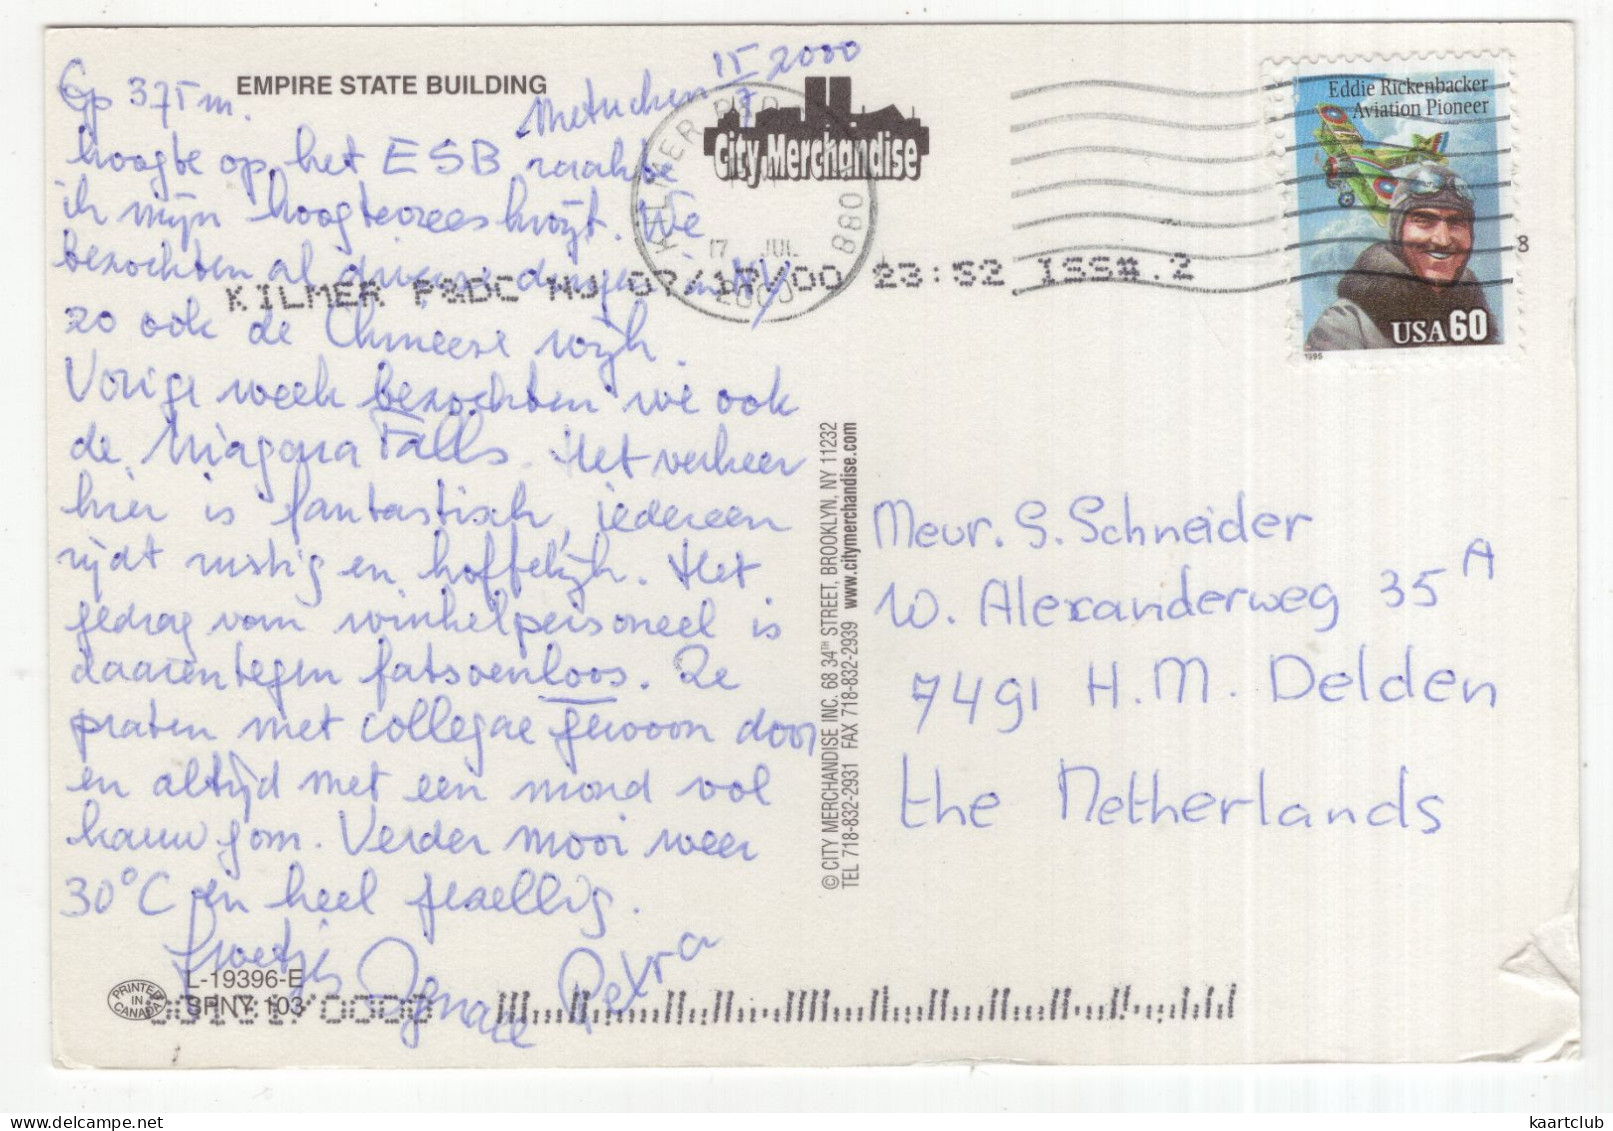 EMPIRE STATE BUILDING
Metuchen 15/7 2000
Op 375 m.
hoogte op het ESB raakte
ik mijn hoogtevrees kwijt. We
bezochten al diverse dingen in NY
zo ook de Chineese wijk.
Vorige week bezochten we ook
de Niagara Falls. Het verkeer
hier is fantastisch, iedereen
rijdt rustig en hoffelijk. Het
gedrag van winkelpersoneel is
daarentegen fatsoenloos. Ze
praten met collegae gewoon door
en altijd met een mond vol
kauwgom. Verder mooi weer
30°C en heel gezellig.
Groetjes Ignace Petra
L-19396-E
SFNY 103
PRINTED IN CANADA
City Merchandise
KILMER P&DC
17 JUL
2000
088
KILMER P&DC NJ 07/17/00 23:52 ISS#.2
© CITY MERCHANDISE INC. 68 34TH STREET, BROOKLYN, NY 11232
TEL 718-832-2931 FAX 718-832-2939 www.citymerchandise.com
Eddie Rickenbacker
Aviation Pioneer
USA 60
1995
8
Meur. S. Schneider
W. Alexanderweg 35 A
7491 H.M. Delden
the Netherlands
kaartclub